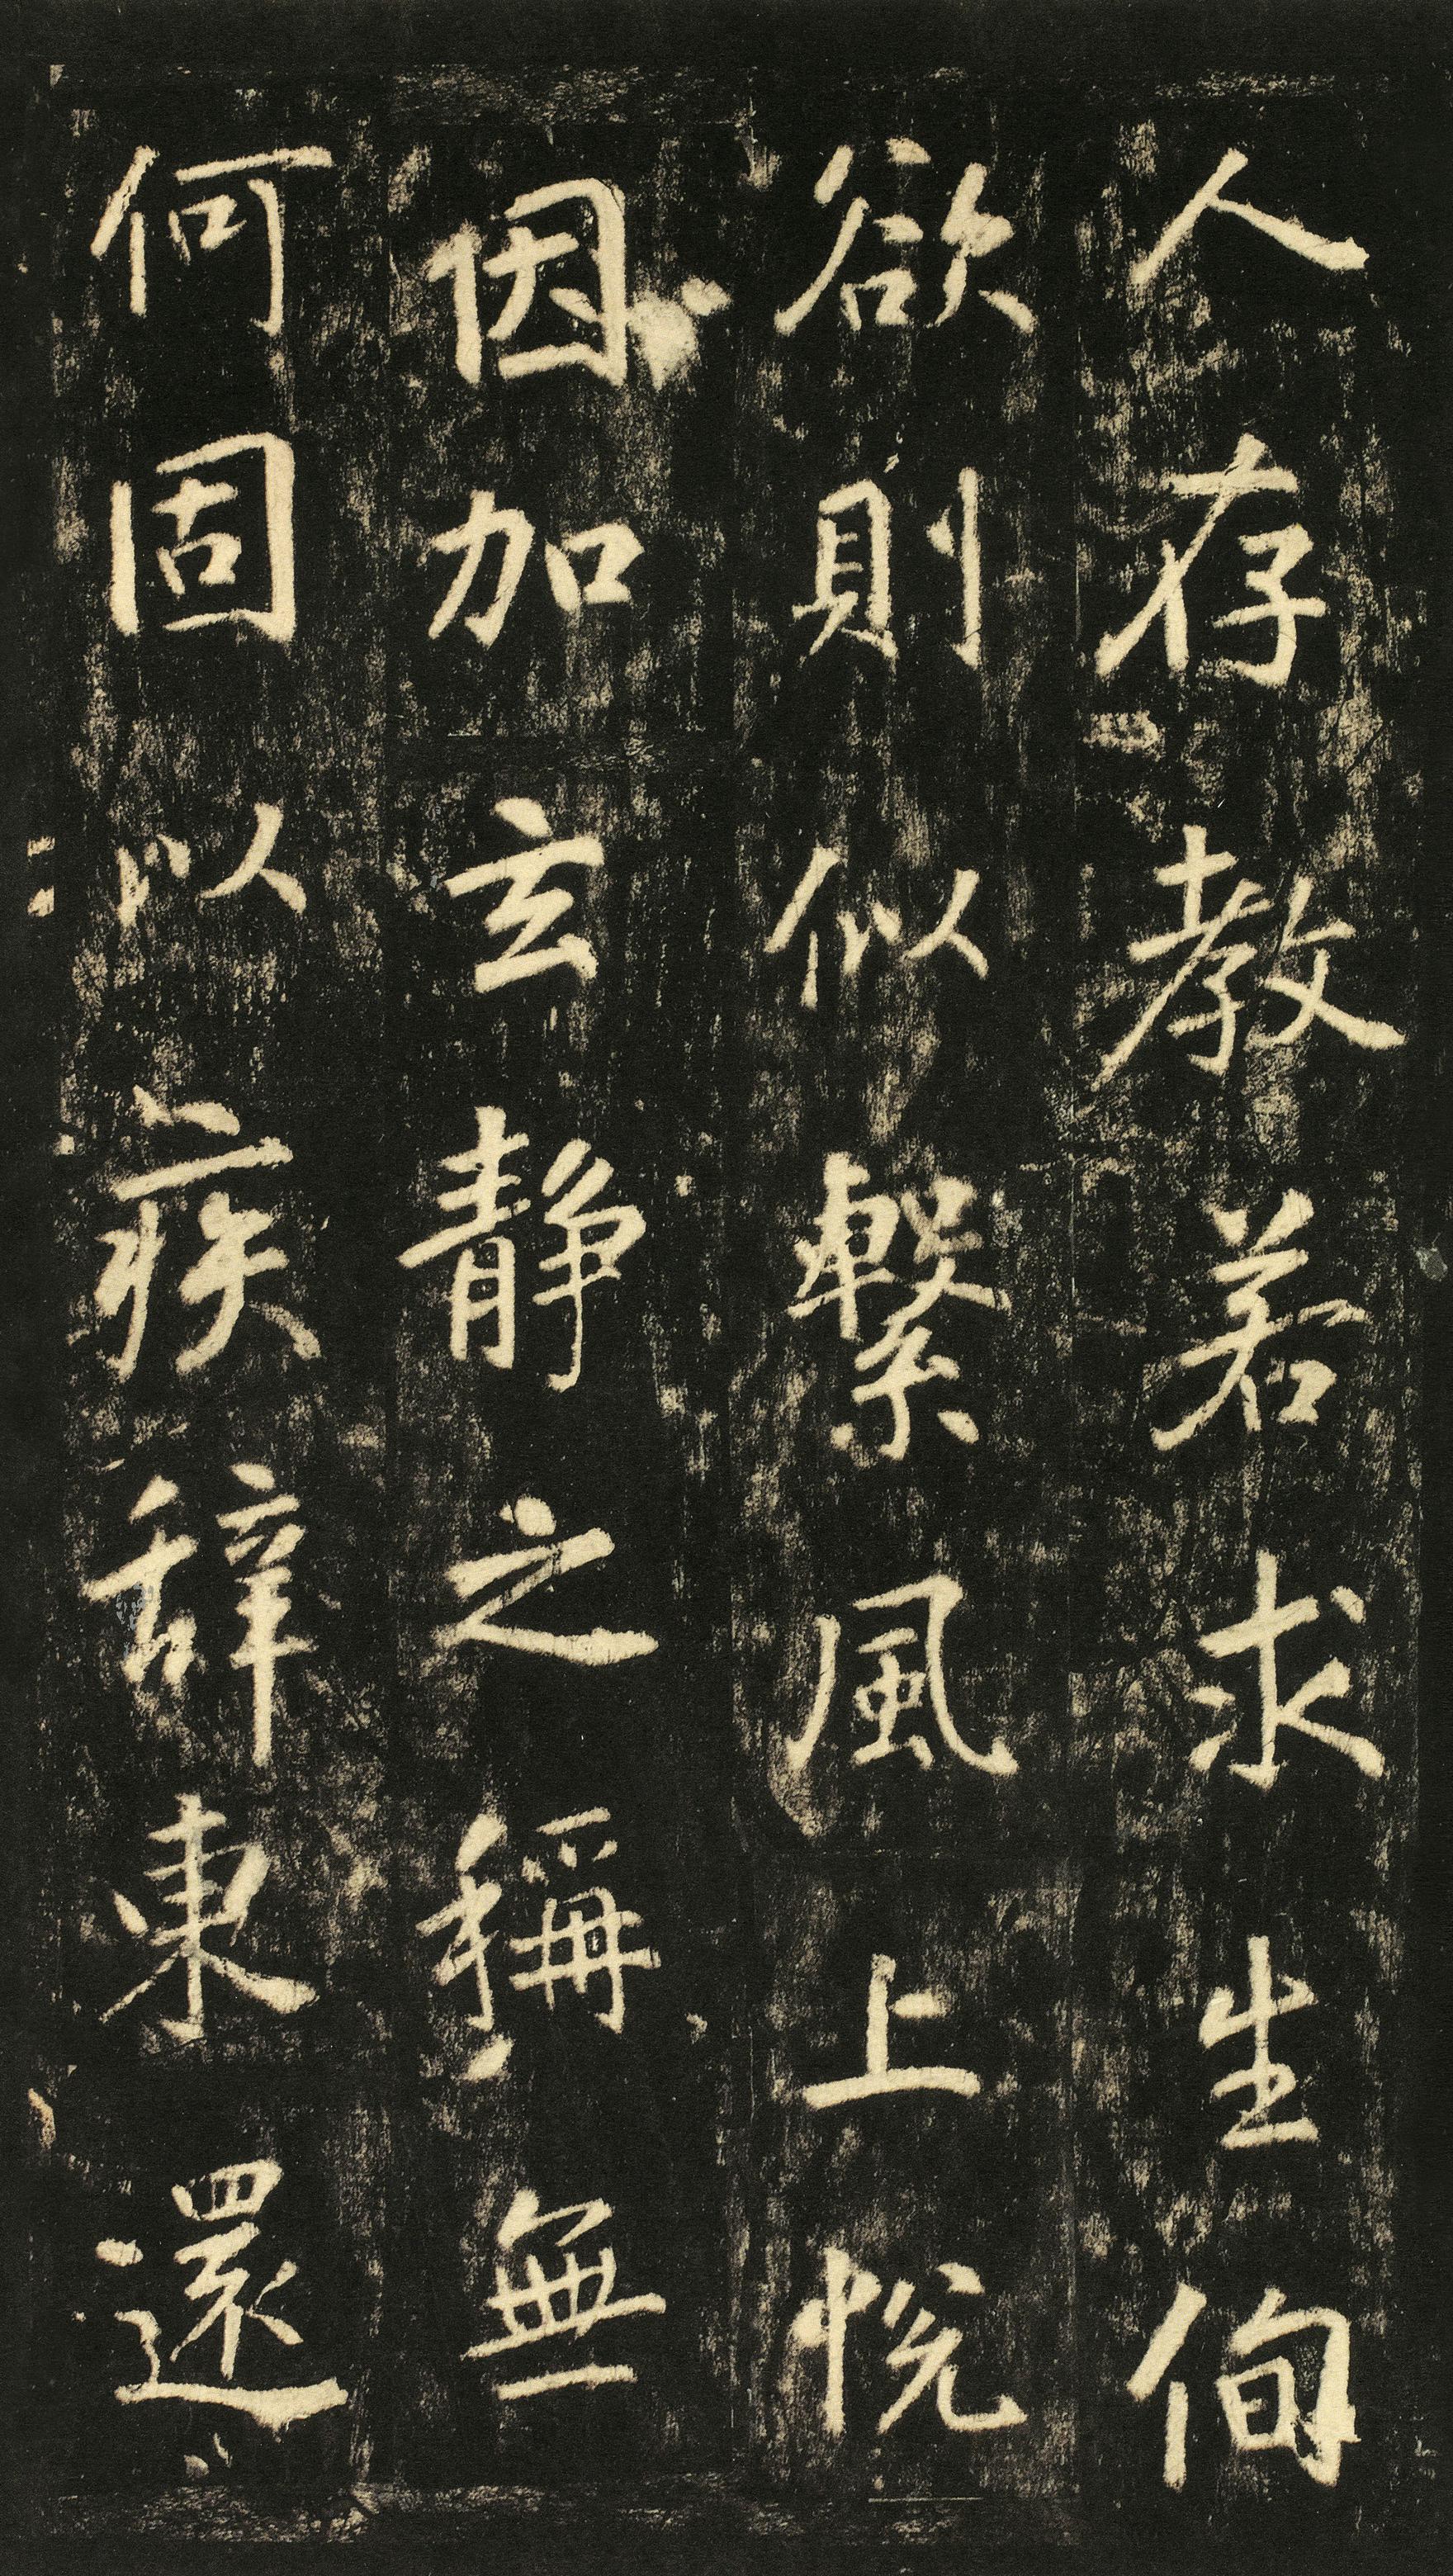 人存教若求生侚
欲則似繫風上悅
因加玄静之稱無
何固以疾辞東還